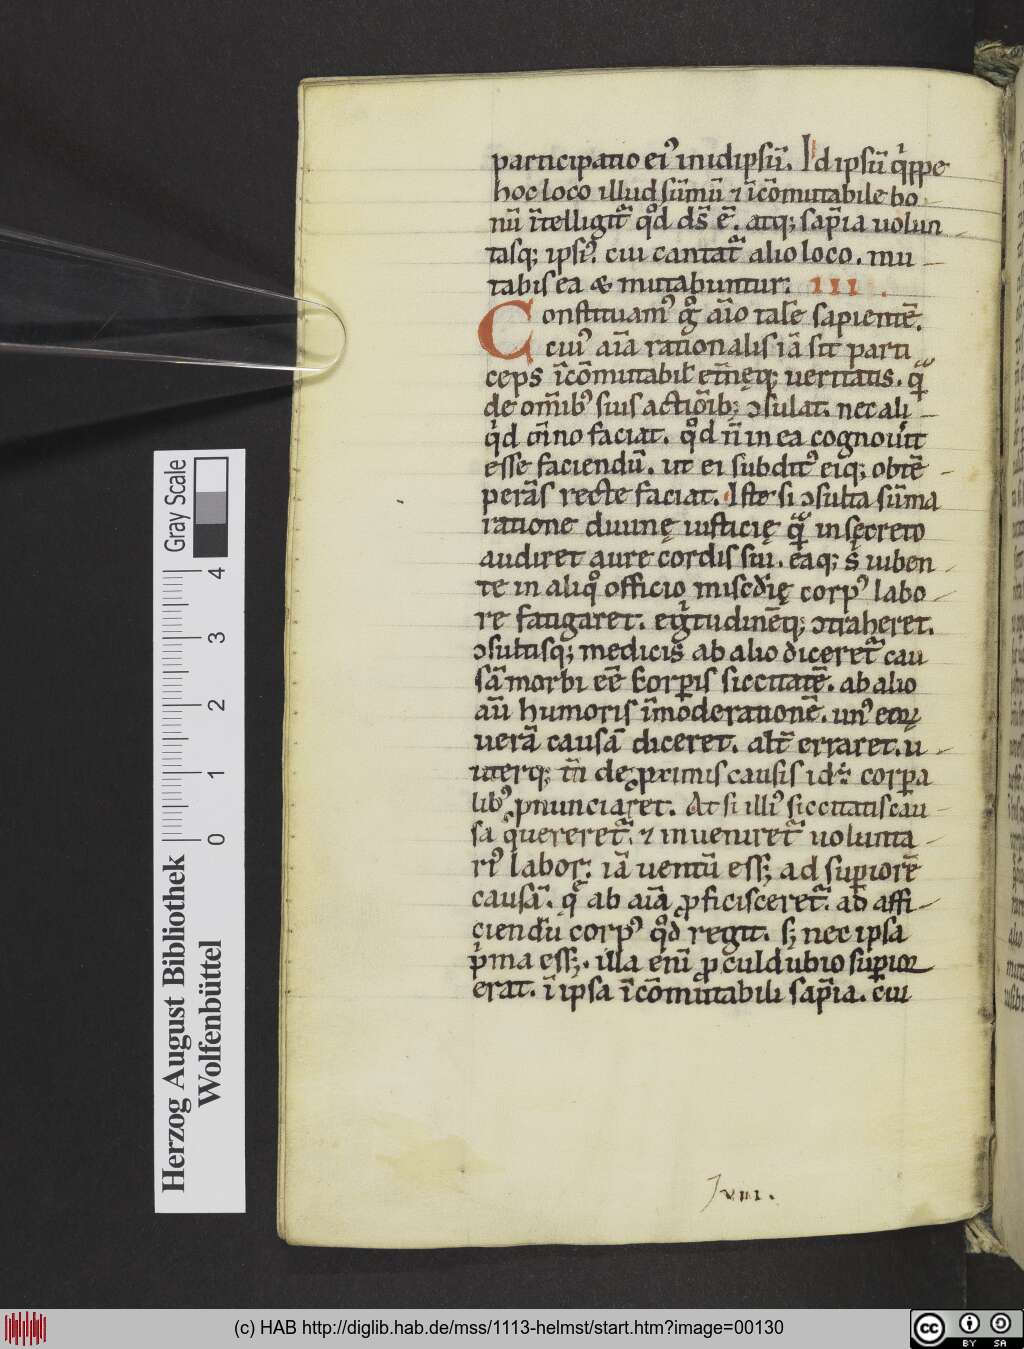 participatio ei᾽ in idipsū. Id ipsū q̇ppe
hoc loco illud sūmū ⁊ ī cōmutabile bo
nū ītelligit᷑ qd̊ ds̄ ē. atq; sap̄ia uolun
tasq; ipsi᾽. cui cantat᷑ alio loco. mu
tabis ea & mutabuntur. III.
Constituam᾽ g̊ aīo talē sapientē.
cui᾽ aīa rationalis iā sit parti
ceps īcōmutabił et̄neq; ueritatis. q̄
de om̄ib᾽ suis actiōib; ɔsulat. nec ali
q̇d om̄ino faciat. qd̊ n̄ in ea cognouit
esse faciendū. ut ei subdit᾽ eiq; obtē
perās recte faciat. Iste si ɔsulta sūma
ratione diuinę iusticię q̄ in secreto
audiret aure cordis sui. eaq; s̄ iuben
te in aliq̊ officio misc̄dię corp᾽ labo
re fatigaret. eg̓tudinēq; ɔtraheret.
ɔsultisq; medicis ab alio diceret᷑ cau
sā morbi eē corp̱is siccitatē. ab alio
aū humoris īmoderationē. un᾽ eoꝝ
uerā causā diceret. alt̄ erraret. u
uterq; tn̄ de ꝓximis causis id ē corp̱a
lib᾽ p̱nunciaret. At si illi᾽ siccitatis cau
sa q̄reret᷑. ⁊ inueniret᷑ uolunta
ri᾽ labor. iā uentū ess; ad sup̱iorē
causā. q̄ ab aīa ꝓficisceret᷑ ad affi
ciendū corp᾽ qd̊ regit. s; nec ipsa
p̓ma ess;. illa eni ꝓculdubio sup̱ior
erat. ī ipsa īcōmutabili sap̄ia. cui
Herzog August Bibliothek
Wolfenbüttel
Gray Scale
0 1 2 3 4
(c) HAB http://diglib.hab.de/mss/1113-helmst/start.htm?image=00130
cc BY SA